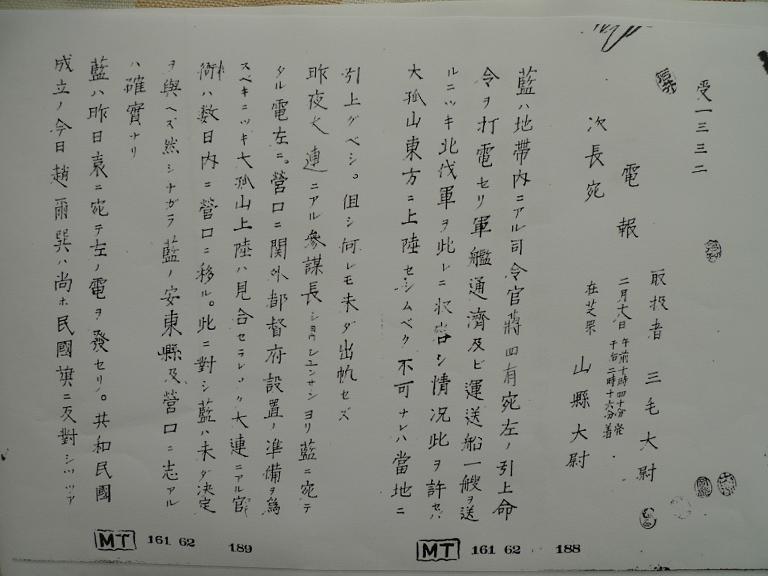 受一三三二
電報
取扱者 三毛大尉
次長宛
二月十八日 午前十時四十分発
午后二時十六分着
在芝罘 山縣大尉
藍ハ地帯内ニアル司令官蔣四有宛左ノ引上命
令ヲ打電セリ軍艦通濟及ビ運送船一艘ヲ送
ルニツキ北伐軍ヲ此レニ収容シ情況此ヲ許セバ
大孤山東方ニ上陸セシムベク不可ナレハ當地ニ
引上グベシ。但シ何レモ未ダ出帆セズ
昨夜大連ニアル参謀長ショウシュンサンヨリ藍ニ宛テ
タル電左ニ。營口ニ関外都督府設置ノ準備ヲ為
スベキニツキ大孤山上陸ハ見合セラレタク大連ニアル官
衙ハ数日内ニ營口ニ移ル。此ニ對シ藍ハ未ダ決定
ヲ與ヘズ然シナガラ藍ノ安東縣及營口ニ志アル
ハ確實ナリ
藍ハ昨日袁ニ宛テ左ノ電ヲ發セリ。共和民國
成立ノ今日趙爾巽ハ尚ホ民國旗ニ反對シツツア
MT 161 62 188
MT 161 62 189